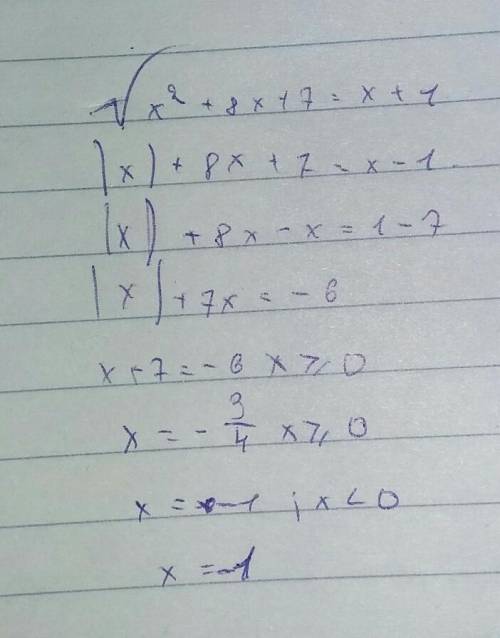 √x² + 8x + 7 = x + 1
|x| + 8x + 7 = x - 1
|x| + 8x - x = 1 - 7
|x| + 7x = - 6
x + 7 = - 6 x ⩾ 0
x = - 3/4 x ⩾ 0
x = -1 ; x < 0
x = -1